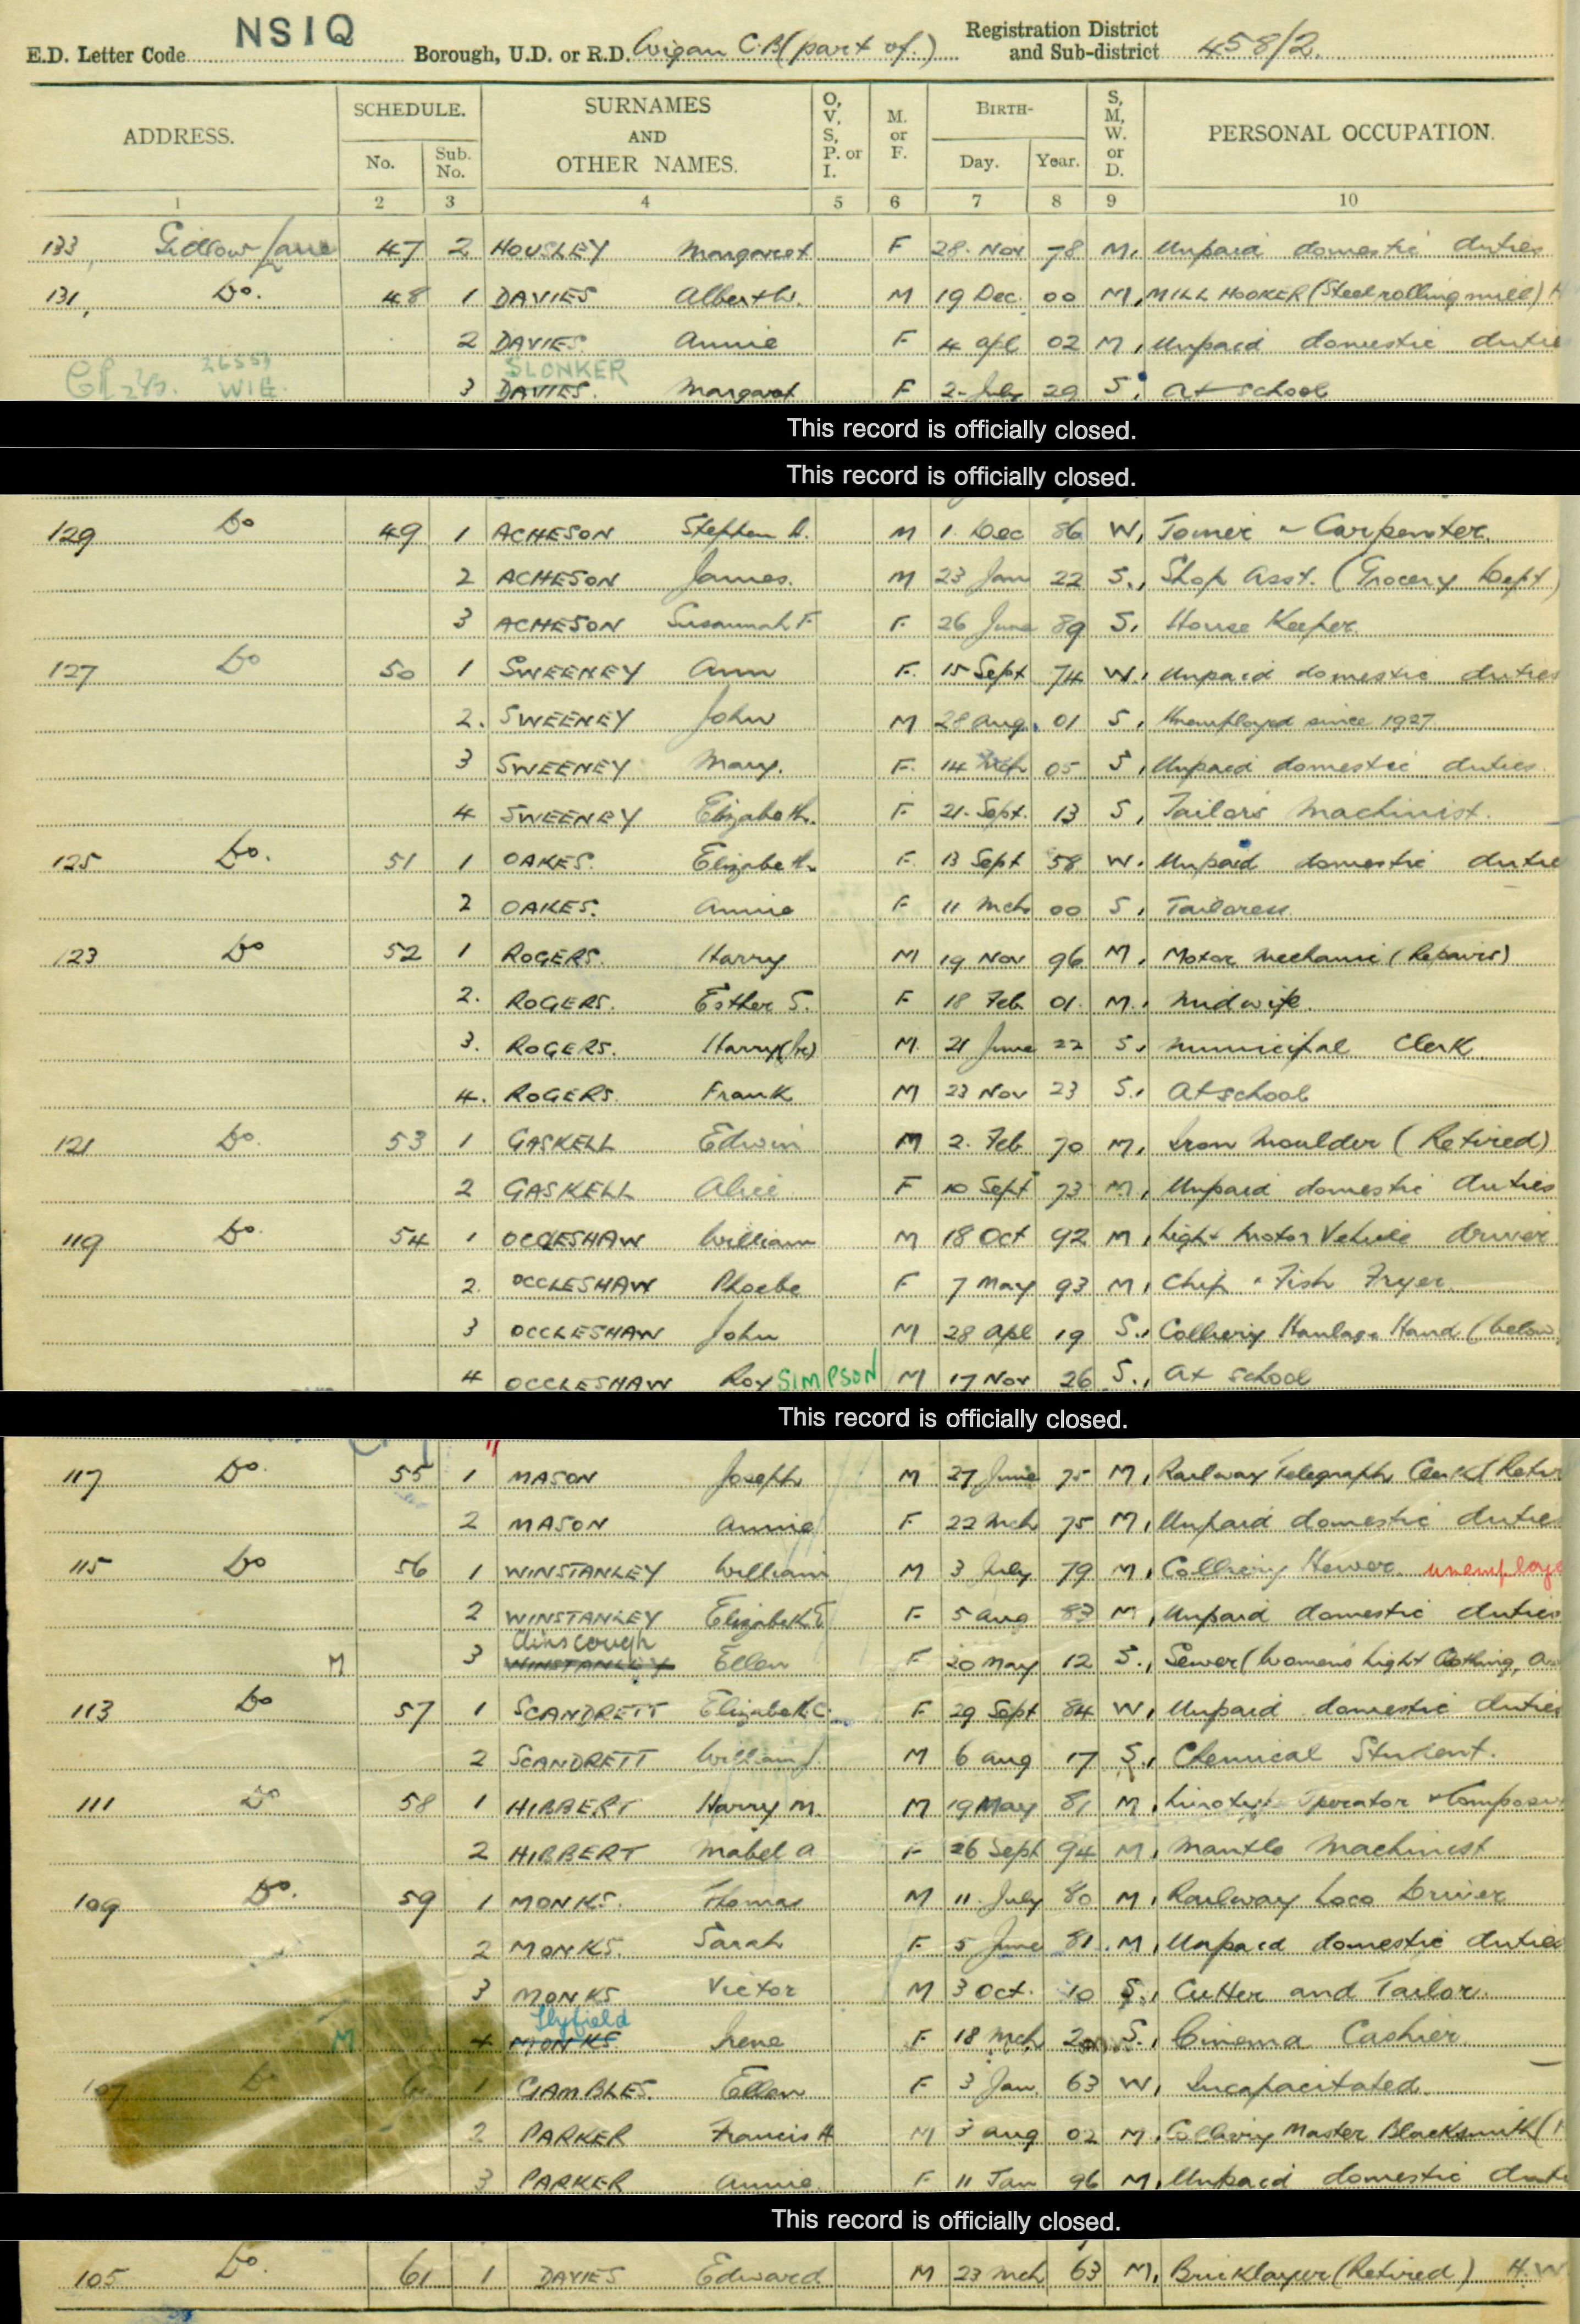 E.D. Letter Code NSIQ Borough, U.D. or R.D. Wigan C.B (part of.) Registration District and Sub-district 458/2.
ADDRESS. SCHEDULE. No. Sub. No. SURNAMES AND OTHER NAMES. O, V, S, P. or I. M. or F. BIRTH- Day. Year. S, M, W. or D. PERSONAL OCCUPATION.
1 2 3 4 5 6 7 8 9 10
133, Gidlow Lane 47 2 HOUSLEY Margaret F 28 Nov 78 M, Unpaid domestic duties
131, Do. 48 1 DAVIES Albert W. M 19 Dec. 00 M, MILL HOOKER (Steel rolling mill) H
2 DAVIES Annie F 4 Apl 02 M, Unpaid domestic dutie
26553 WIG. SLONKER
3 DAVIES. Margaret F 2 July 29 S, At school
This record is officially closed.
This record is officially closed.
129 Do 49 1 ACHESON Stephen M 1 Dec 86 W, Joiner & Carpenter.
2 ACHESON James. M 23 Jan 22 S., Shop Asst. (Grocery Dept)
3 ACHESON Susannah F F. 26 June 89 S, House Keeper.
127 Do 50 1 SWEENEY Ann F. 15 Sept 74 W., Unpaid domestic duties
2. SWEENEY John M 28 Aug. 01 S, Unemployed since 1927
3 SWEENEY Mary. F. 14 Mch 05 S, Unpaid domestic duties.
4 SWEENEY Elizabeth. F 21. Sept. 13 S, Tailor's Machinist.
125 Do. 51 1 OAKES. Elizabeth. F 13 Sept 58 W. Unpaid domestic dutie
2 OAKES. Annie F 11 Mch 00 S, Tailoress
123 Do 52 1 ROGERS. Harry M 19 Nov 96 M, Motor Mechanic (Repairs)
2. ROGERS. Esther S. F 18 Feb 01. M., Midwife.
3. ROGERS. Harry (Jr) M. 21 June 22 S, Municipal Clerk
4. ROGERS. Frank M 23 Nov 23 S., At school
121 Do. 53 1 GASKELL Edwin M 2. Feb 70 M, Iron Moulder (Retired)
2 GASKELL Alice F 10 Sept 73 M, Unpaid domestic duties
119 Do. 54 1 OCCLESHAW William M 18 Oct 92 M, Light Motor Vehicle driver
2. OCCLESHAW Phoebe F 7 May 93 M, Chip & Fish Fryer.
3 OCCLESHAW John M 28 Apl 19 S., Colliery Haulage Hand (below
4 OCCLESHAW Roy SIMPSON M 17 Nov 26 S., At school
This record is officially closed.
117 Do. 55 1 MASON Joseph M 27 June 75 M, Railway Telegraph Clerk (Retir
2 MASON Annie F 22 Mch 75 M, Unpaid domestic dutie
115 Do 56 1 WINSTANLEY William M 3 July 79 M, Colliery Hewer. unemploye
2 WINSTANLEY Elizabeth E F 5 Aug 83 M, Unpaid domestic duties
Ainscough
M 3 WINSTANLEY Ellen F 20 May 12 S., Sewer (Women's Light Clothing,
113 Do 57 1 SCANDRETT Elizabeth C. F 29 Sept 84 W, Unpaid domestic duties
2 SCANDRETT William J. M 6 Aug 17 S., Chemical Student.
111 Do 58 1 HIBBERT Harry M. M 19 May 81 M, Linotype Operator & Compos
2 HIBBERT Mabel A F 26 Sept 94 M, Mantle Machinist
109 Do. 59 1 MONKS. Thomas M 11. July 80 M, Railway Loco Driver
2 MONKS. Sarah F 5 June 81. M, Unpaid domestic duties
3 MONKS Victor M 3 Oct. 10 S., Cutter and Tailor.
Slyfield
M 4 MONKS. Irene F 18 Mch 20 S., Cinema Cashier.
107 Do 1 GAMBLES. Ellen F 3 Jan. 63 W, Incapacitated.
2 PARKER Francis H M 3 Aug 02 M, Colliery Master Blacksmith (
3 PARKER Annie F 11 Jan 96 M, Unpaid domestic duti
This record is officially closed.
105 Do. 61 1 DAVIES Edward M 23 Mch 63 M, Bricklayer (Retired) H.W